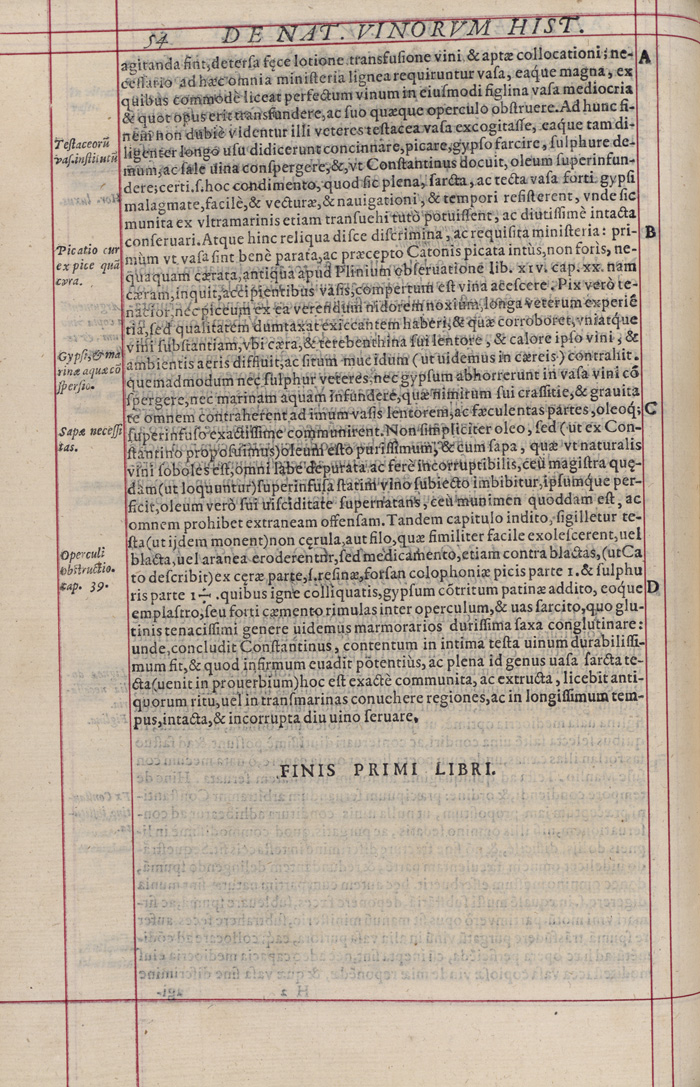 54 DE NAT. VINORVM HIST.
agitanda sint, detersa fęce lotione transfusione vini & aptæ collocationi; ne- A
cessario ad hæc omnia ministeria lignea requiruntur vasa, eaque magna, ex
quibus commodè liceat perfectum vinum in eiusmodi figlina vasa mediocria
& quot opus erit transfundere, ac suo quæque operculo obstruere. Ad hunc fi-
nem non dubiè videntur illi veteres testacea vasa excogitasse, eaque tam di-
Testaceorū
vas. institutū
ligenter longo usu didicerunt concinnare, picare, gypso farcire, sulphure de-
mum, ac sale uina conspergere, &, vt Constantinus docuit, oleum superinfun-
dere; certi .s. hoc condimento, quod sic plena, sarcta, ac tecta vasa forti gypsi
malagmate, facilè, & vecturæ, & nauigationi, & tempori resisterent, vnde sic
munita ex vltramarinis etiam transuehi tutò potuissent, ac diutissimè intacta
conseruari. Atque hinc reliqua disce discrimina, ac requisita ministeria: pri- B
Picatio cur
ex pice quā
cera.
mùm vt vasa sint benè parata, ac præcepto Catonis picata intùs, non foris, ne-
quaquam cærata, antiqua apud Plinium obseruatione lib. xiv. cap. xx. nam
cæram, inquit, accipientibus vasis, compertum est vina acescere. Pix verò te-
nacior, nec piceum ex ea verendum nidorem noxium, longa veterum experiē
tia, sed qualitatem dumtaxat exiccantem haberi, & quæ corroboret, vniatque
vini substantiam, vbi cæra, & terebenthina sui lentore, & calore ipso vini, &
Gypsi, & ma
rinæ aquæ cō
spersio.
ambientis aeris diffluit, ac situm mucidum (ut uidemus in cæreis) contrahit.
quemadmodum nec sulphur veteres: nec gypsum abhorrerunt in vasa vini cō
spergere, nec marinam aquam infundere, quæ nimitum sui crassitie, & grauita
te omnem contraherent ad imum vasis lentorem, ac fæculentas partes, oleoq; C
Sapæ necessi
tas.
superinfuso exactissime communirent. Non simpliciter oleo, sed (ut ex Con-
stantino proposuimus) oleum esto purissimum, & cum sapa, quæ vt naturalis
vini soboles est, omni labe depurata ac ferè incorruptibilis, ceu magistra quę-
dam (ut loquuntur) superinfusa statim vino subiecto imbibitur, ipsumque per-
ficit, oleum verò sui uisciditate supernatans, ceu munimen quoddam est, ac
omnem prohibet extraneam offensam. Tandem capitulo indito, sigilletur te-
sta (ut ijdem monent) non cęrula, aut filo, quæ similiter facile exolescerent, uel
Operculi
obstructio.
cap. 39.
blacta, uel aranea eroderentur, sed medicamēto, etiam contra blactas, (ut Ca
to describit) ex ceræ parte, .s. resinæ, forsan colophoniæ picis parte 1. & sulphu
ris parte 1 ÷ . quibus igne colliquatis, gypsum cōtritum patinæ addito, eoque D
emplastro, seu forti cæmento rimulas inter operculum, & uas sarcito, quo glu-
tinis tenacissimi genere uidemus marmorarios durissima saxa conglutinare:
unde, concludit Constantinus, contentum in intima testa uinum durabilissi-
mum fit, & quod infirmum euadit pōtentiùs, ac plena id genus uasa sarcta te-
cta (uenit in prouerbium) hoc est exactè communita, ac extructa, licebit anti-
quorum ritu, uel in transmarinas conuehere regiones, ac in longissimum tem-
pus, intacta, & incorrupta diu uino seruare.
FINIS PRIMI LIBRI.